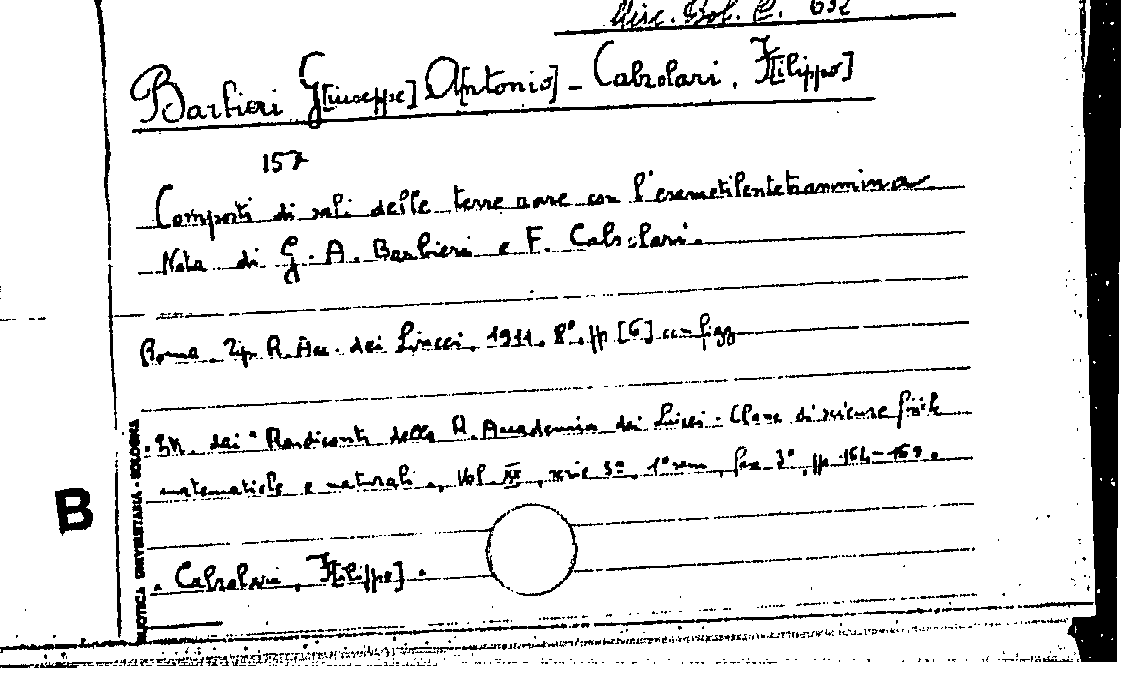 Misc. Bol. C. 632
Barbieri G[iuseppe] A[ntonio] - Calzolari, F[ilippo]
157
Composti di sali delle terre rare con l'esametilentetrammina
Nota di G. A. Barbieri e F. Calzolari.
Roma. Tip. R. Acc. dei Lincei, 1911. 8°. pp [6] con figg
. Estr. dai "Rendiconti della R. Accademia dei Lincei - Classe di scienze fisiche
matematiche e naturali", Vol. XX, serie 5ª, 1° sem., fasc. 3°, pp 164-169.
. Calzolari, F[ilippo] .
B
BIBLIOTECA UNIVERSITARIA - BOLOGNA